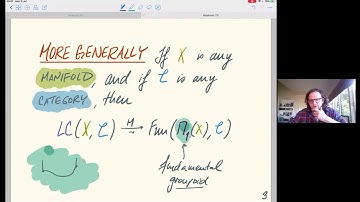 MORE GENERALLY If X is any
MANIFOLD, and if C is any
CATEGORY, then
LC(X, C) M→~ Fun(Π₁(X), C)
fundamental
groupoid
3